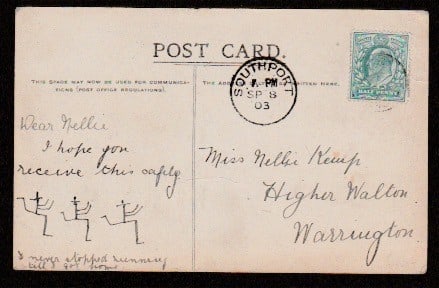 POST CARD.
THIS SPACE MAY NOW BE USED FOR COMMUNICA-
TIONS (POST OFFICE REGULATIONS).
THE A WRITTEN HERE.
SOUTHPORT
7. PM
SP 8
03
HALF PENNY
Dear Nellie
I hope you
receive this safely
I never stopped running
till I got home
Miss Nellie Kemp
Higher Walton
Warrington